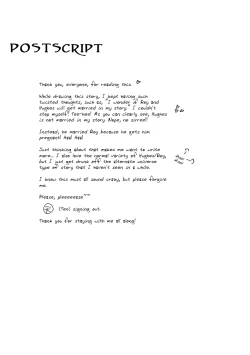 POSTSCRIPT
Thank you, everyone, for reading this.
While drawing this story, I kept having such
twisted thoughts, such as, "I wonder if Roy and
Hughes will get married in my story." I couldn't
stop myself! Tee-hee! As you can clearly see, Hughes
is not married in my story. Nope, no sirree!
Instead, he married Roy because he gets him
pregnant! Hee hee!
Just thinking about that makes me want to write
more... I also love the normal variety of Hughes/Roy,
but I just get drunk off the alternate universe
type of story that I haven't seen in a while.
I know this must all sound crazy, but please forgive
me.
Please, pleeeeease~~
(Ten) signing out.
Thank you for staying with me all along!